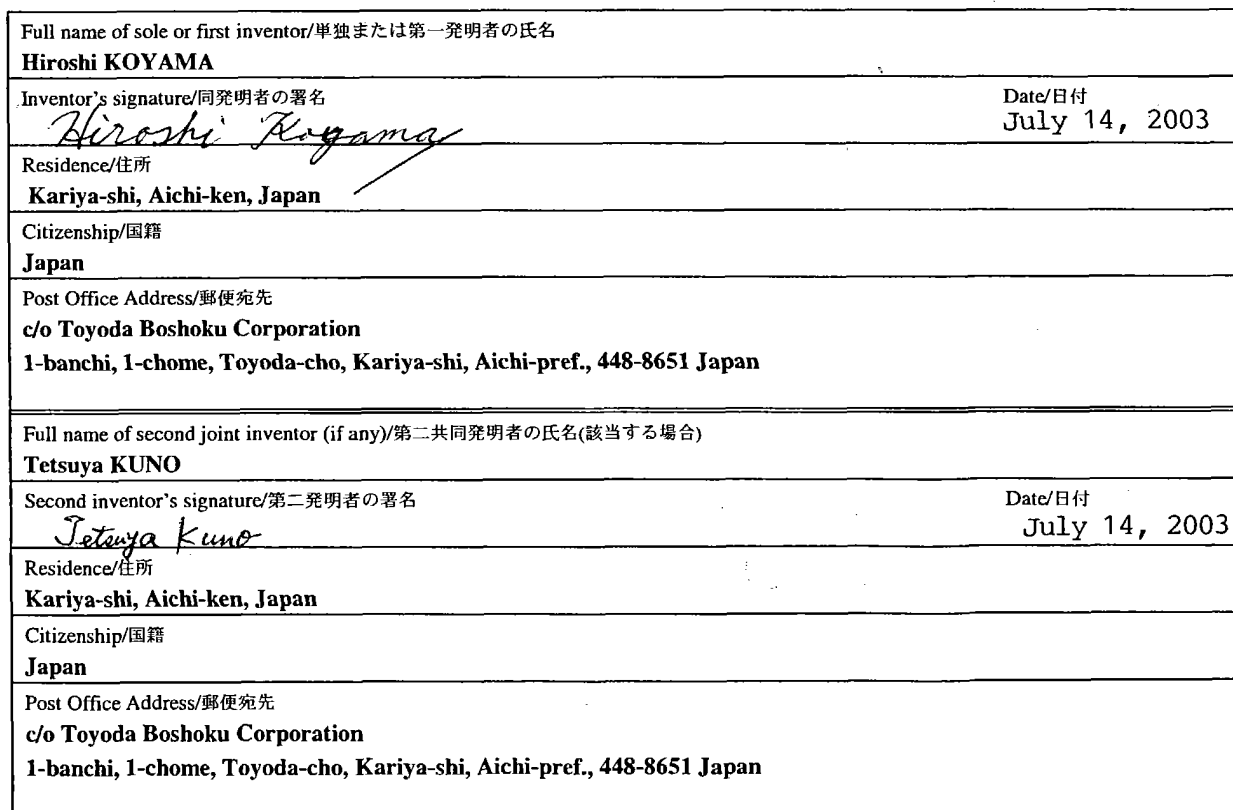 Full name of sole or first inventor/単独または第一発明者の氏名
Hiroshi KOYAMA
Inventor's signature/同発明者の署名
Date/日付
Hiroshi Koyama
July 14, 2003
Residence/住所
Kariya-shi, Aichi-ken, Japan
Citizenship/国籍
Japan
Post Office Address/郵便宛先
c/o Toyoda Boshoku Corporation
1-banchi, 1-chome, Toyoda-cho, Kariya-shi, Aichi-pref., 448-8651 Japan
Full name of second joint inventor (if any)/第二共同発明者の氏名(該当する場合)
Tetsuya KUNO
Second inventor's signature/第二発明者の署名
Date/日付
Tetsuya Kuno
July 14, 2003
Residence/住所
Kariya-shi, Aichi-ken, Japan
Citizenship/国籍
Japan
Post Office Address/郵便宛先
c/o Toyoda Boshoku Corporation
1-banchi, 1-chome, Toyoda-cho, Kariya-shi, Aichi-pref., 448-8651 Japan